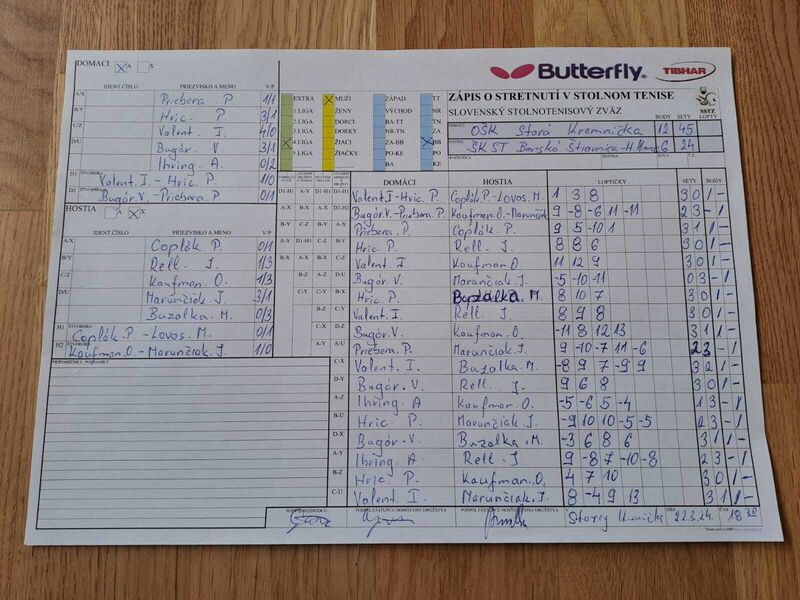 DOMÁCI A X
IDENT ČÍSLO PRIEZVISKO A MENO V/P
A/X Priebera P. 1/1
B/Y Hric P. 3/1
C/Z Valent I. 4/0
D/U Bugár V. 3/1
Ihring A. 0/2
D1 ŠTVORHRA Valent I. - Hric P 1/0
D2 ŠTVORHRA Bugár V. - Priebera P. 0/1
HOSTIA A X
IDENT ČÍSLO PRIEZVISKO A MENO V/P
A/X Coplák P. 0/1
B/Y Rell J. 1/3
C/Z Kaufman O. 1/3
D/U Marunčiak J. 3/1
Buzalka M. 0/3
H1 ŠTVORHRA Coplák P. - Lovos M. 0/1
H2 Kaufman O. - Marunčiak J. 1/0
PRIPOMIENKY, POZNÁMKY
EXTRA MUŽI ZÁPAD. TT
1.LIGA ŽENY VÝCHOD NR
2.LIGA DORCI BA-TT TN
3.LIGA DORKY NR-TN ZA
4.LIGA ŽIACI ZA-BB BB
5.LIGA ŽIAČKY PO-KE PO
BA KE
Butterfly TIBHAR
ZÁPIS O STRETNUTÍ V STOLNOM TENISE
SLOVENSKÝ STOLNOTENISOVÝ ZVÄZ
SSTZ
BODY SETY LOPTY
OŠK Stará Kremnička 12 45
ŠKST Banská Štiavnica-H. 6 24
DOMÁCI HOSTIA LOPTIČKY SETY BODY
Valent I-Hric P. Coplák P.-Lovos M. 1 3 8 3 0 1 -
Bugár V.-Priebera P. Kaufman O.-Marunčiak 9 -8 -6 11 -11 2 3 - 1
Priebera P. Coplák P. 9 5 -10 1 3 1 1 -
Hric P. Rell J. 8 8 6 3 0 1 -
Valent I. Kaufman O. 11 12 9 3 0 1 -
Bugár V. Marunčiak J. -5 -10 -11 0 3 - 1
Hric P. Buzalka M. 8 10 7 3 0 1 -
Valent I. Rell J. 8 9 8 3 0 1 -
Bugár V. Kaufman O. -11 8 12 13 3 1 1 -
Priebera P. Marunčiak J. 9 -10 -7 11 -6 2 3 - 1
Valent I. Buzalka M. -8 9 7 -9 9 3 2 1 -
Bugár V. Rell J. 9 6 8 3 0 1 -
Ihring A. Kaufman O. -5 -6 5 -4 1 3 - 1
Hric P. Marunčiak J. -9 10 10 -5 -5 2 3 - 1
Bugár V. Buzalka M. -3 6 8 6 3 1 1 -
Ihring A. Rell J. 9 -8 7 -10 -8 2 3 - 1
Hric P. Kaufman O. 4 7 10 3 0 1 -
Valent I. Marunčiak J. 8 -4 9 13 3 1 1 -
PODPIS ROZHODCU PODPIS ZÁSTUPCU DOMÁCEHO DRUŽSTVA PODPIS ZÁSTUPCU HOSŤUJÚCEHO DRUŽSTVA
22.3.24. 18 30